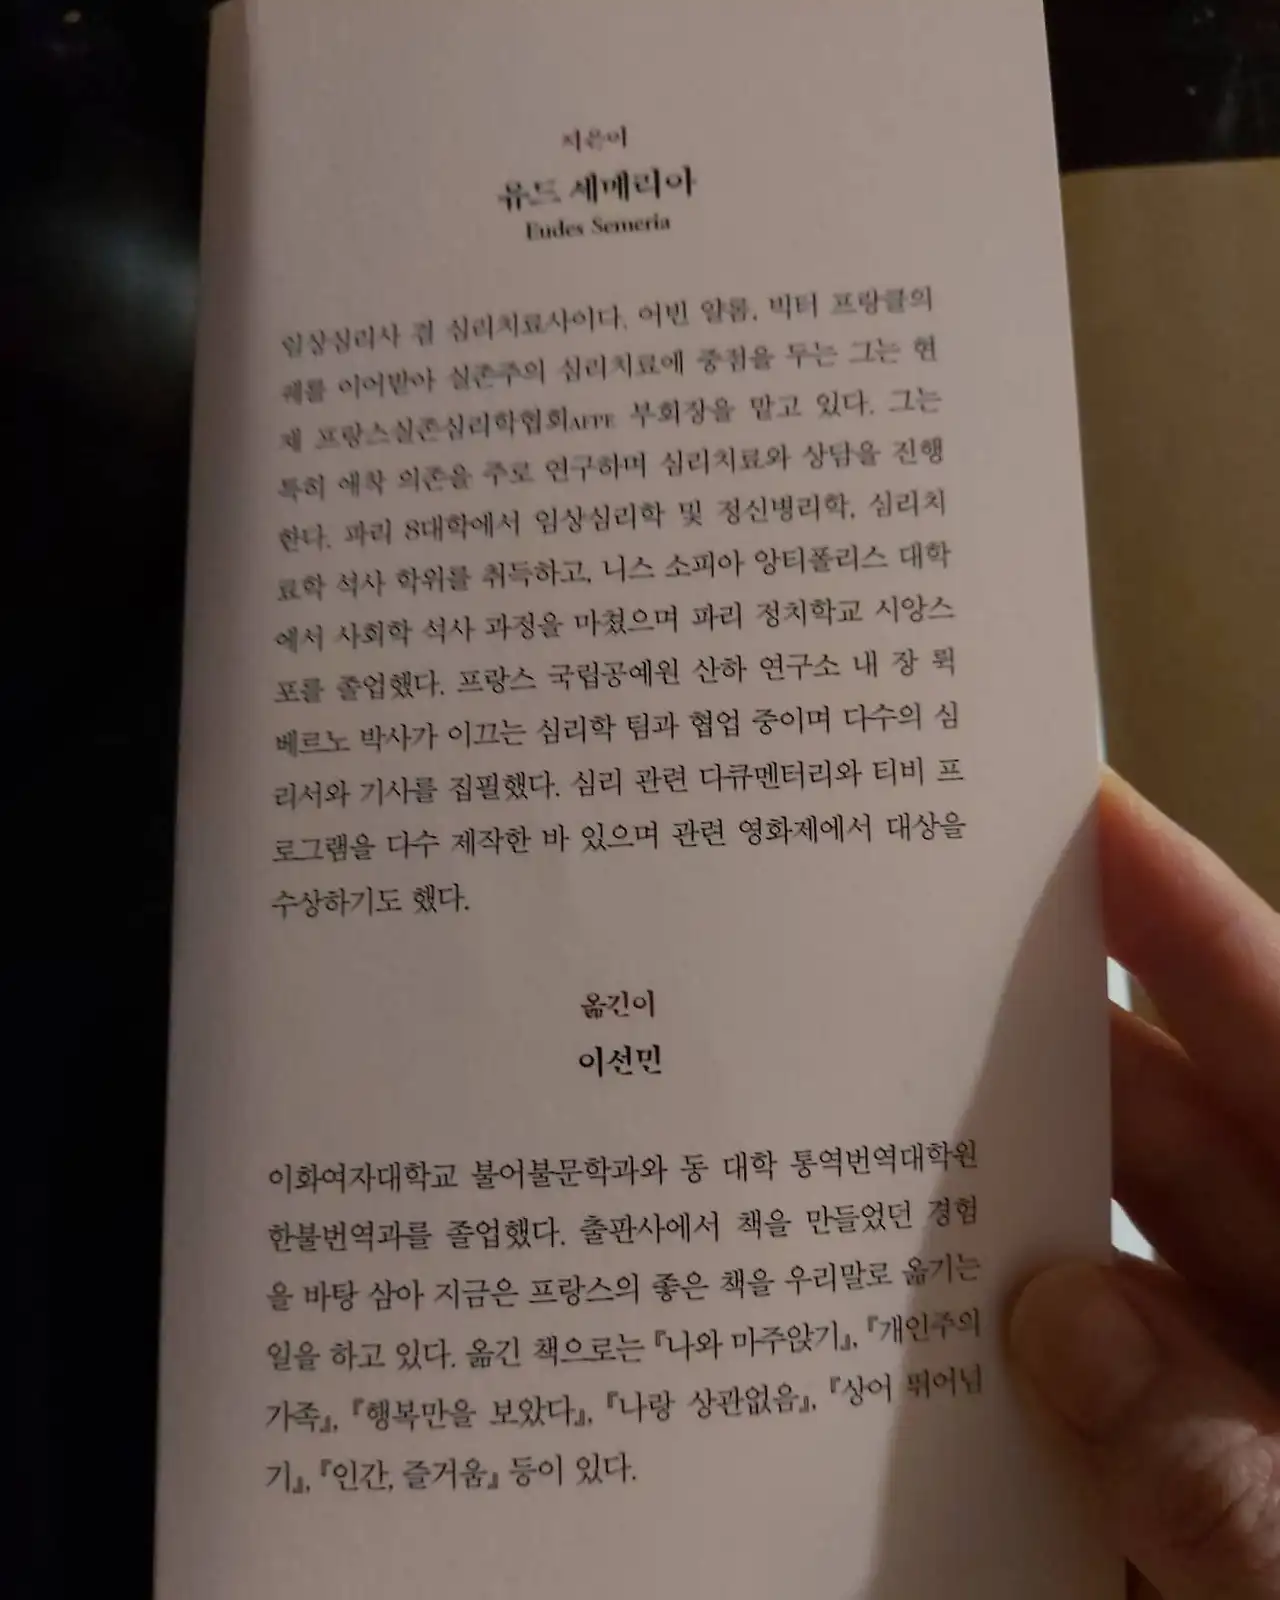 지은이
유드 세메리아
Eudes Semeria
임상심리사 겸 심리치료사이다. 어빈 얄롬, 빅터 프랑클의
궤를 이어받아 실존주의 심리치료에 중점을 두는 그는 현
재 프랑스실존심리학협회AFPE 부회장을 맡고 있다. 그는
특히 애착 의존을 주로 연구하며 심리치료와 상담을 진행
한다. 파리 8대학에서 임상심리학 및 정신병리학, 심리치
료학 석사 학위를 취득하고, 니스 소피아 앙티폴리스 대학
에서 사회학 석사 과정을 마쳤으며 파리 정치학교 시앙스
포를 졸업했다. 프랑스 국립공예원 산하 연구소 내 장 뤽
베르노 박사가 이끄는 심리학 팀과 협업 중이며 다수의 심
리서와 기사를 집필했다. 심리 관련 다큐멘터리와 티비 프
로그램을 다수 제작한 바 있으며 관련 영화제에서 대상을
수상하기도 했다.
옮긴이
이선민
이화여자대학교 불어불문학과와 동 대학 통역번역대학원
한불번역과를 졸업했다. 출판사에서 책을 만들었던 경험
을 바탕 삼아 지금은 프랑스의 좋은 책을 우리말로 옮기는
일을 하고 있다. 옮긴 책으로는 『나와 마주앉기』, 『개인주의
가족』, 『행복만을 보았다』, 『나랑 상관없음』, 『상어 뛰어넘
기』, 『인간, 즐거움』 등이 있다.